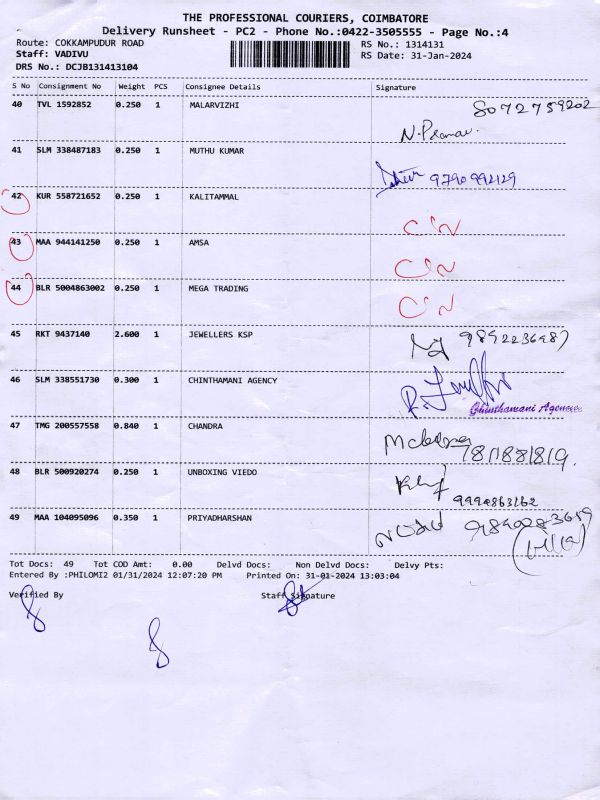 THE PROFESSIONAL COURIERS, COIMBATORE
Delivery Runsheet - PC2 - Phone No.:0422-3505555 - Page No.:4
Route: COKKAMPUDUR ROAD
RS No.: 1314131
Staff: VADIVU
RS Date: 31-Jan-2024
DRS No.: DCJB131413104
S No Consignment No Weight PCS Consignee Details Signature
40 TVL 1592852 0.250 1 MALARVIZHI 8072759202
41 SLM 338487183 0.250 1 MUTHU KUMAR
9790992129
42 KUR 558721652 0.250 1 KALITAMMAL
43 MAA 944141250 0.250 1 AMSA
44 BLR 5004863002 0.250 1 MEGA TRADING
45 RKT 9437140 2.600 1 JEWELLERS KSP 9892236987
46 SLM 338551730 0.300 1 CHINTHAMANI AGENCY
Chinthamani
47 TMG 200557558 0.840 1 CHANDRA
48 BLR 500920274 0.250 1 UNBOXING VIEDO
49 MAA 104095096 0.350 1 PRIYADHARSHAN
Tot Docs: 49 Tot COD Amt: 0.00 Delvd Docs: Non Delvd Docs: Delvy Pts:
Entered By :PHILOMI2 01/31/2024 12:07:20 PM Printed On: 31-01-2024 13:03:04
Verified By Staff Signature